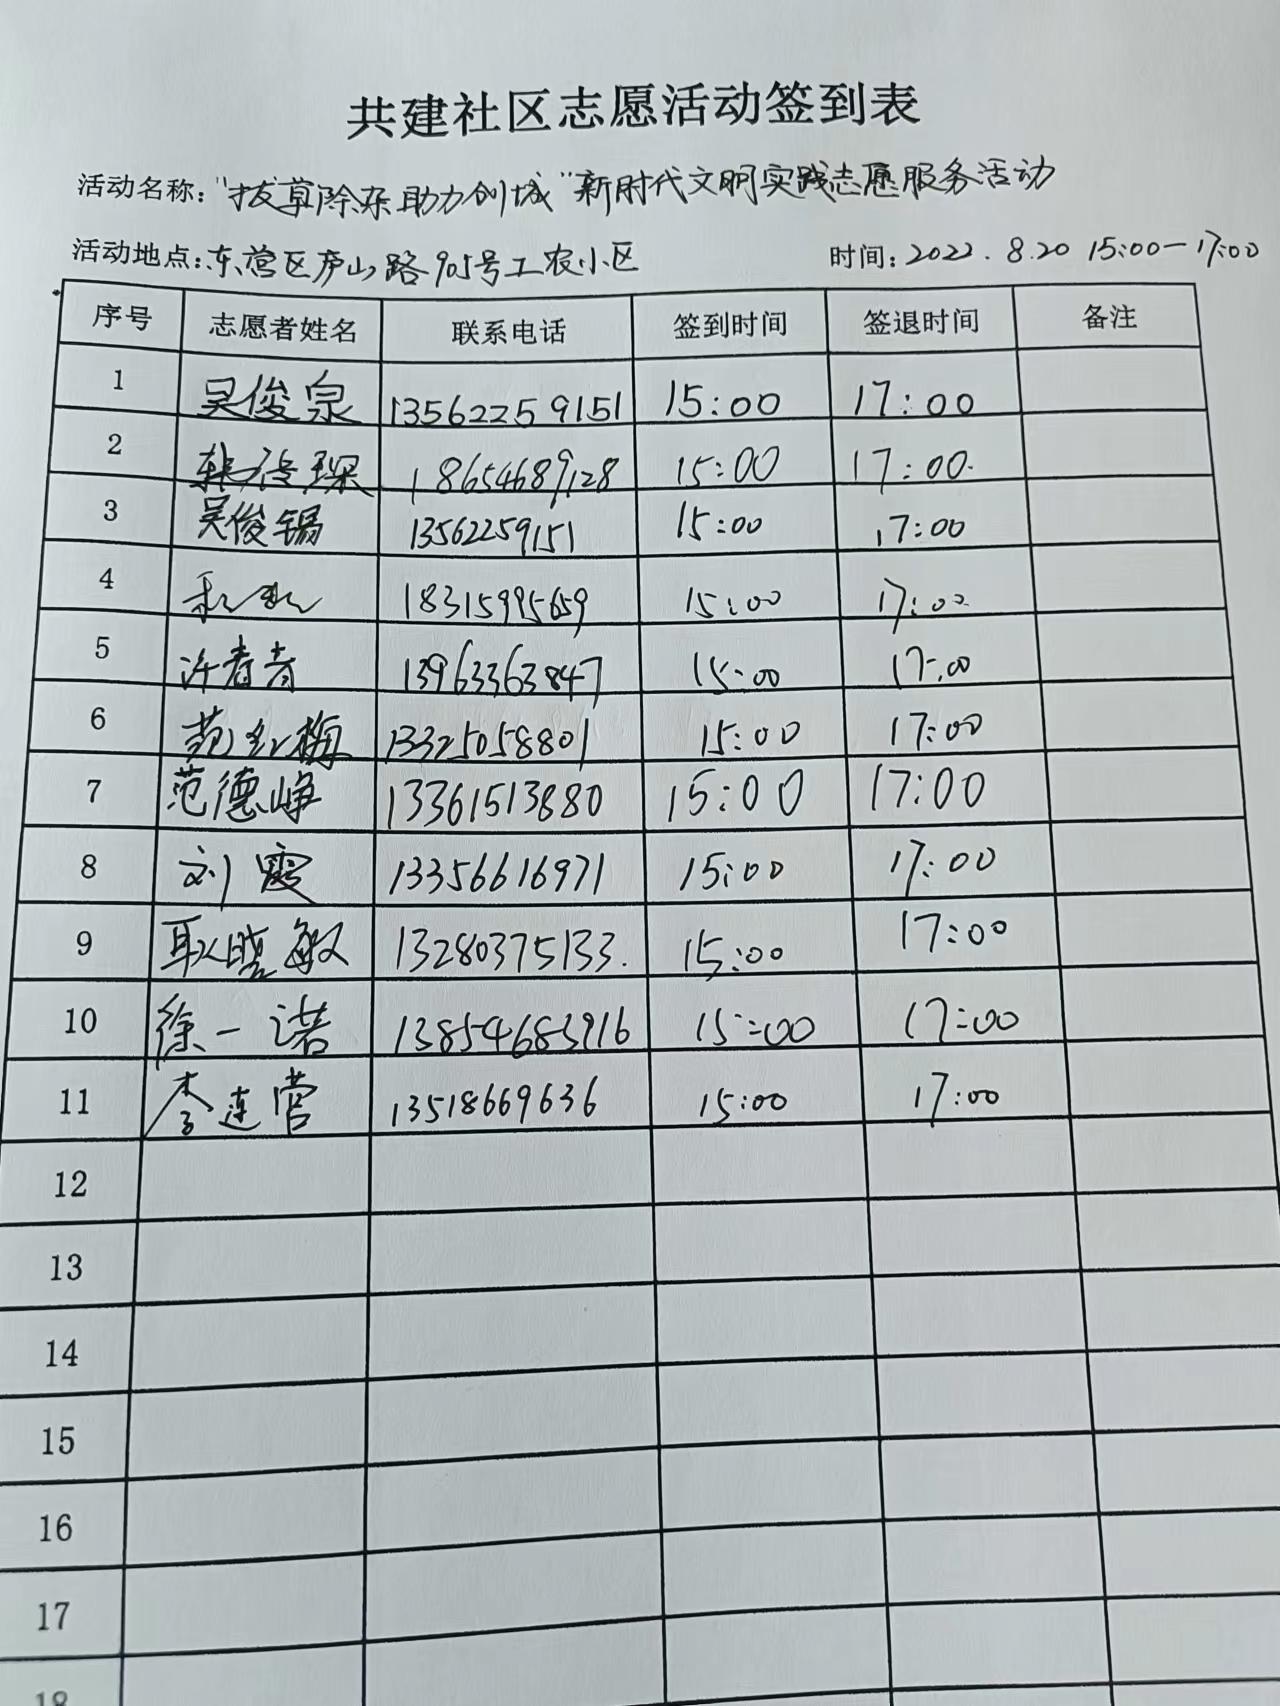 共建社区志愿活动签到表
活动名称:"拔草除杂助力创城"新时代文明实践志愿服务活动
活动地点:东营区庐山路905号工农小区 时间:2022.8.20 15:00-17:00
序号 志愿者姓名 联系电话 签到时间 签退时间 备注
1 吴俊泉 13562259151 15:00 17:00
2 18654689128 15:00 17:00.
3 吴俊锡 13562259151 15:00 17:00
4 18315995659 15:00 17:00
5 许 13963363847 15:00 17:00
6 范红梅 13325058801 15:00 17:00
7 范德峥 13361513880 15:00 17:00
8 刘霞 13356616971 15:00 17:00
9 耿晓敏 13280375133. 15:00 17:00
10 徐一诺 13854683916 15:00 17:00
11 李连营 13518669636 15:00 17:00
12
13
14
15
16
17
18